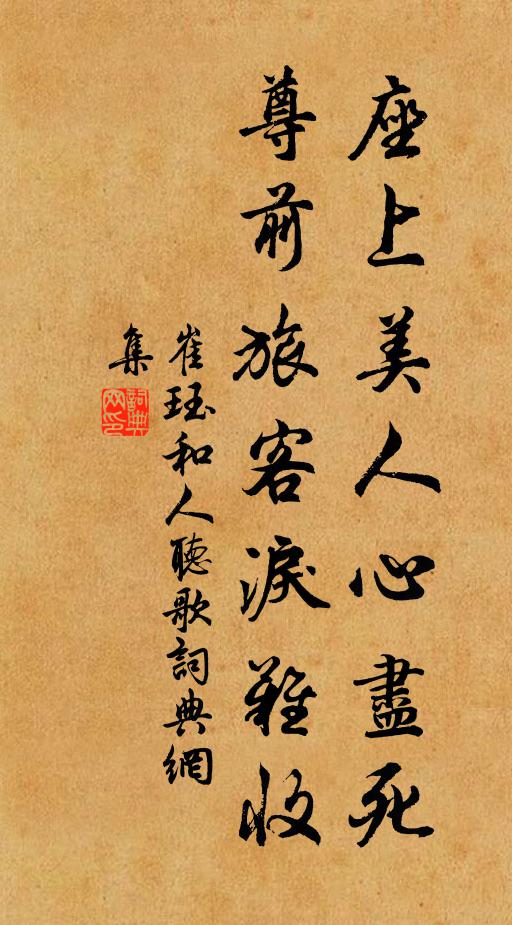 座上美人心盡死
尊前旅客淚難收
崔珏和人聽歌詞典網
集
詞典網印